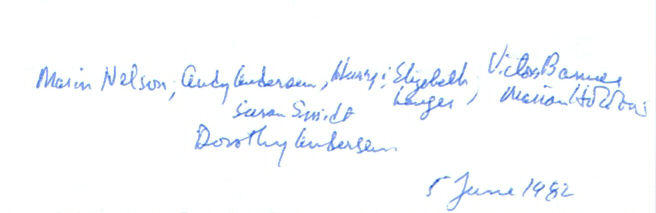 Marin Nelson, Andy Andersen, Harry & Elizabeth Langer, Victor Marion
Susan Smidt
Dorothy Andersen
5 June 1982